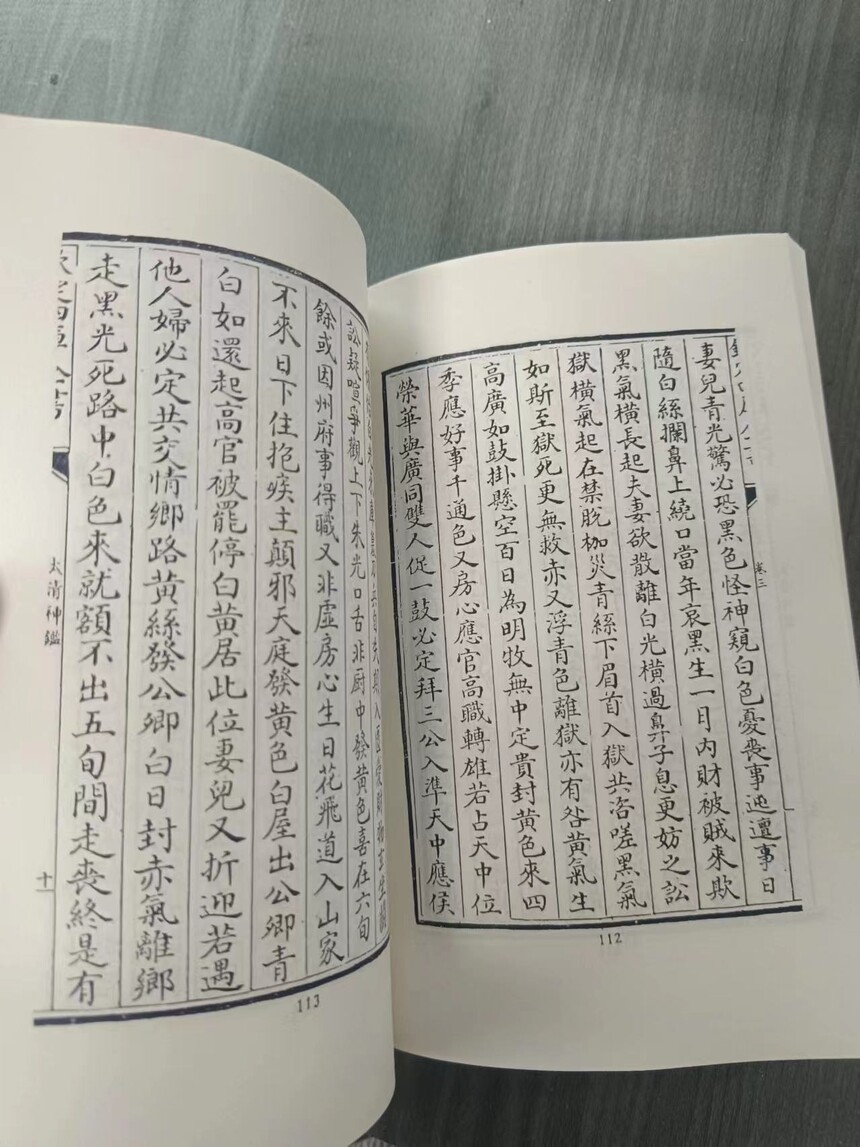 卷三
妻兒青光驚必恐黑色怪神窺白色憂喪事迍邅事日
隨白絲攔鼻上繞口當年哀黑生一月內財被賊來欺
黑氣橫長起夫妻欲散離白光橫過鼻子息更妨之訟
獄橫氣起在禁脫枷災青絲下眉首入獄共咨嗟黑氣
如斯至獄死更無救赤又浮青色離獄亦有咎黃氣生
高廣如鼓掛懸空百日為明牧無中定貴封黃色來四
季應好事千通色又房心應官高職轉雄若占天中位
榮華與廣同雙人促一鼓必定拜三公入準天中應侯
112
訟疑喧爭觀上下朱光口舌非厨中發黃色喜在六旬
餘或因州府事得職又非虛房心生日花飛道入山家
不來日下住抱疾主顛邪天庭發黃色白屋出公卿青
白如還起高官被罷停白黃居此位妻兒又折迎若遇
他人婦必定共交情鄉路黃絲發公卿白日封赤氣離鄉
走黑光死路中白色來就額不出五旬間走喪終是有
太清神鑑
十一
113